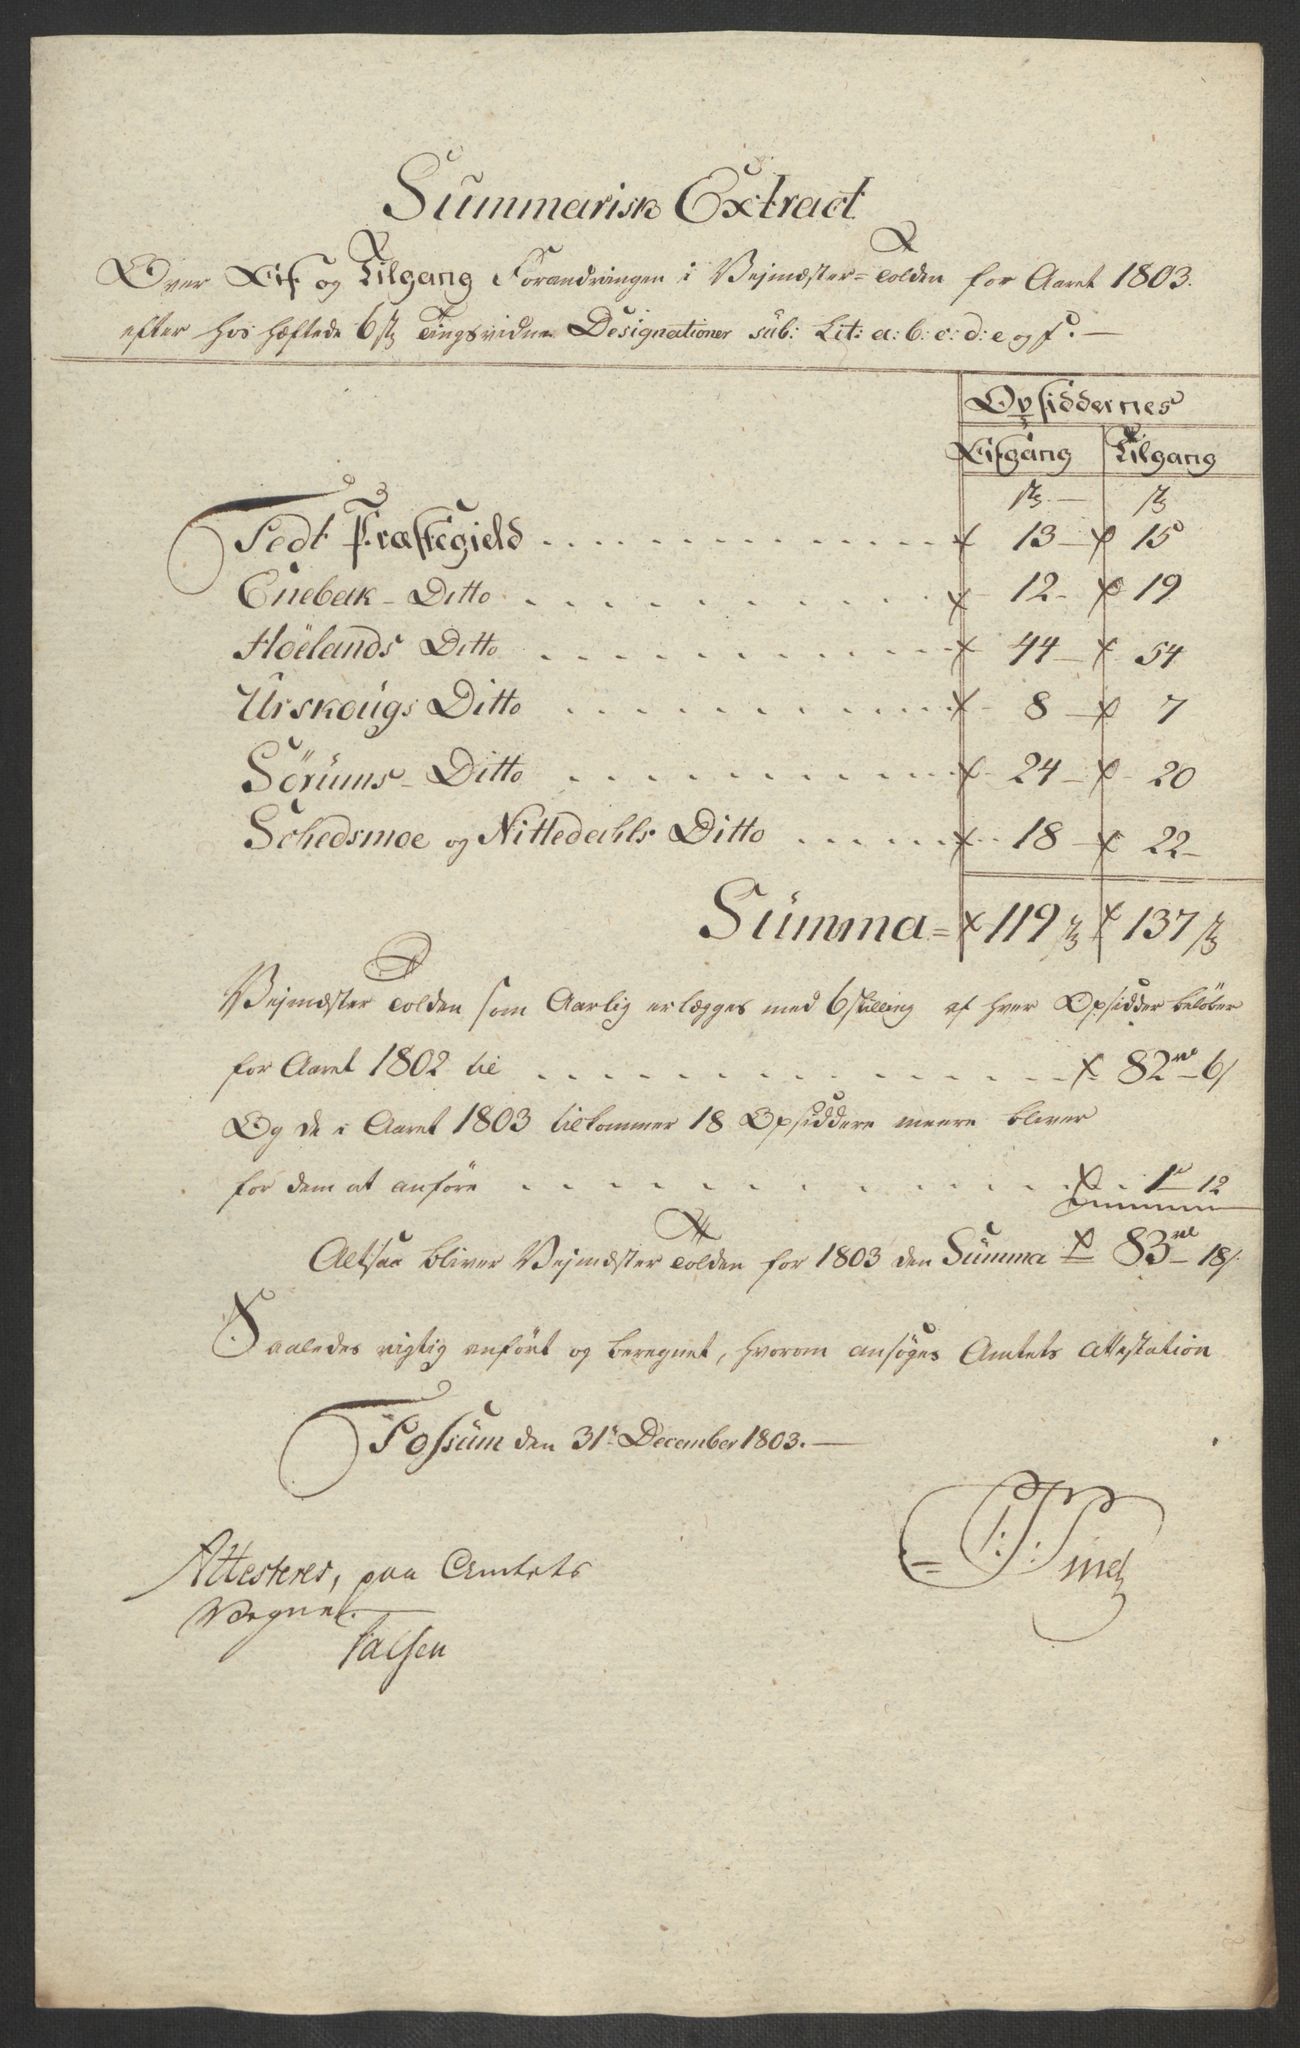 Summarisk Extract
Over Af og Tilgang Forandringen i Vejmester-Tolden for Aaret 1803.
efter hos hæftede 6 st Tingsvidne Designationer sub: Lit: a: b: c: d: e og f: —
Opsiddernes
Afgang Tilgang
st st
Fedt Præstegield 13 15
Enebak - Ditto 12 19
Höelands Ditto 44 54
Urskougs Ditto 8 7
Sörums - Ditto 24 20
Schedsmoe og Nittedahls Ditto 18 22
Summa = 119 st 137 st
Vejmester Tolden som Aarlig erlægges med 6 skilling af hver Opsidder belöber
for Aaret 1802 til 82 rd 6 s
Og de i Aaret 1803 tilkommer 18 Opsiddere meere bliver
for dem at anföre 1 r 12
Altsaa bliver Vejmester Tolden for 1803 den Summa 83 rd 18 s.
Saaledes rigtig anfört og beregnet, hvorom ansöges Amtets Attestation
Fossum den 31te December 1803. —
Attesteres, paa Amtets
Vegne
Falsen